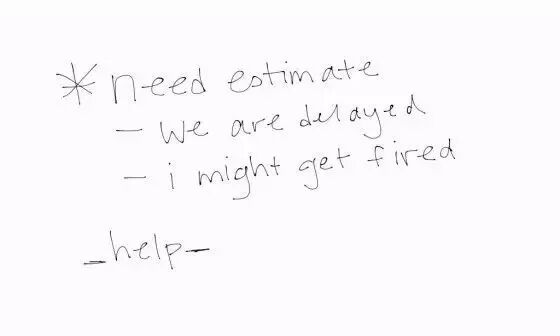 * need estimate
- we are delayed
- i might get fired
_help_